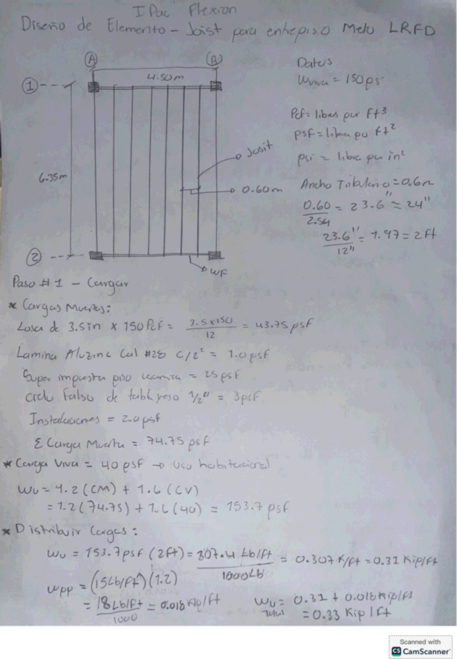 I Pac Flexion
Diseño de Elemento - Joist para entrepiso Meto LRFD
A
B
4.50m
1
Datos
Wviva = 150 psi
Pcf = libras por ft³
psf = libra por ft²
psi = libra por in²
Joist
6.35m
0.60m
Ancho Tributario = 0.6m
0.60 / 2.54 = 23.6" ≈ 24"
23.6" / 12" = 1.97 ≈ 2 ft
2
WF
Paso #1 - Cargar
* Cargas Muertas:
Losa de 3.5in x 150 Pcf = 3.5x150 / 12 = 43.75 psf
Lamina Aluzinc Cal #28 c/2" = 1.0 psf
Super impuesta piso ceramica = 25 psf
Cielo Falso de tablyeso 1/2" = 3psf
Instalaciones = 2.0 psf
Σ Carga Muerta = 74.75 psf
* Carga Viva = 40 psf → Uso habitacional
Wu = 1.2 (CM) + 1.6 (CV)
= 1.2 (74.75) + 1.6 (40) = 153.7 psf
* Distribuir Cargas:
Wu = 153.7 psf (2ft) = 307.4 Lb/ft / 1000Lb = 0.307 K/ft = 0.31 Kip/ft
Wpp = (15Lb/ft)(1.2)
= 18 Lb/ft / 1000 = 0.018 Kip/ft
Wu Total = 0.31 + 0.018 Kip/ft
= 0.33 Kip/ft
Scanned with
CS CamScanner